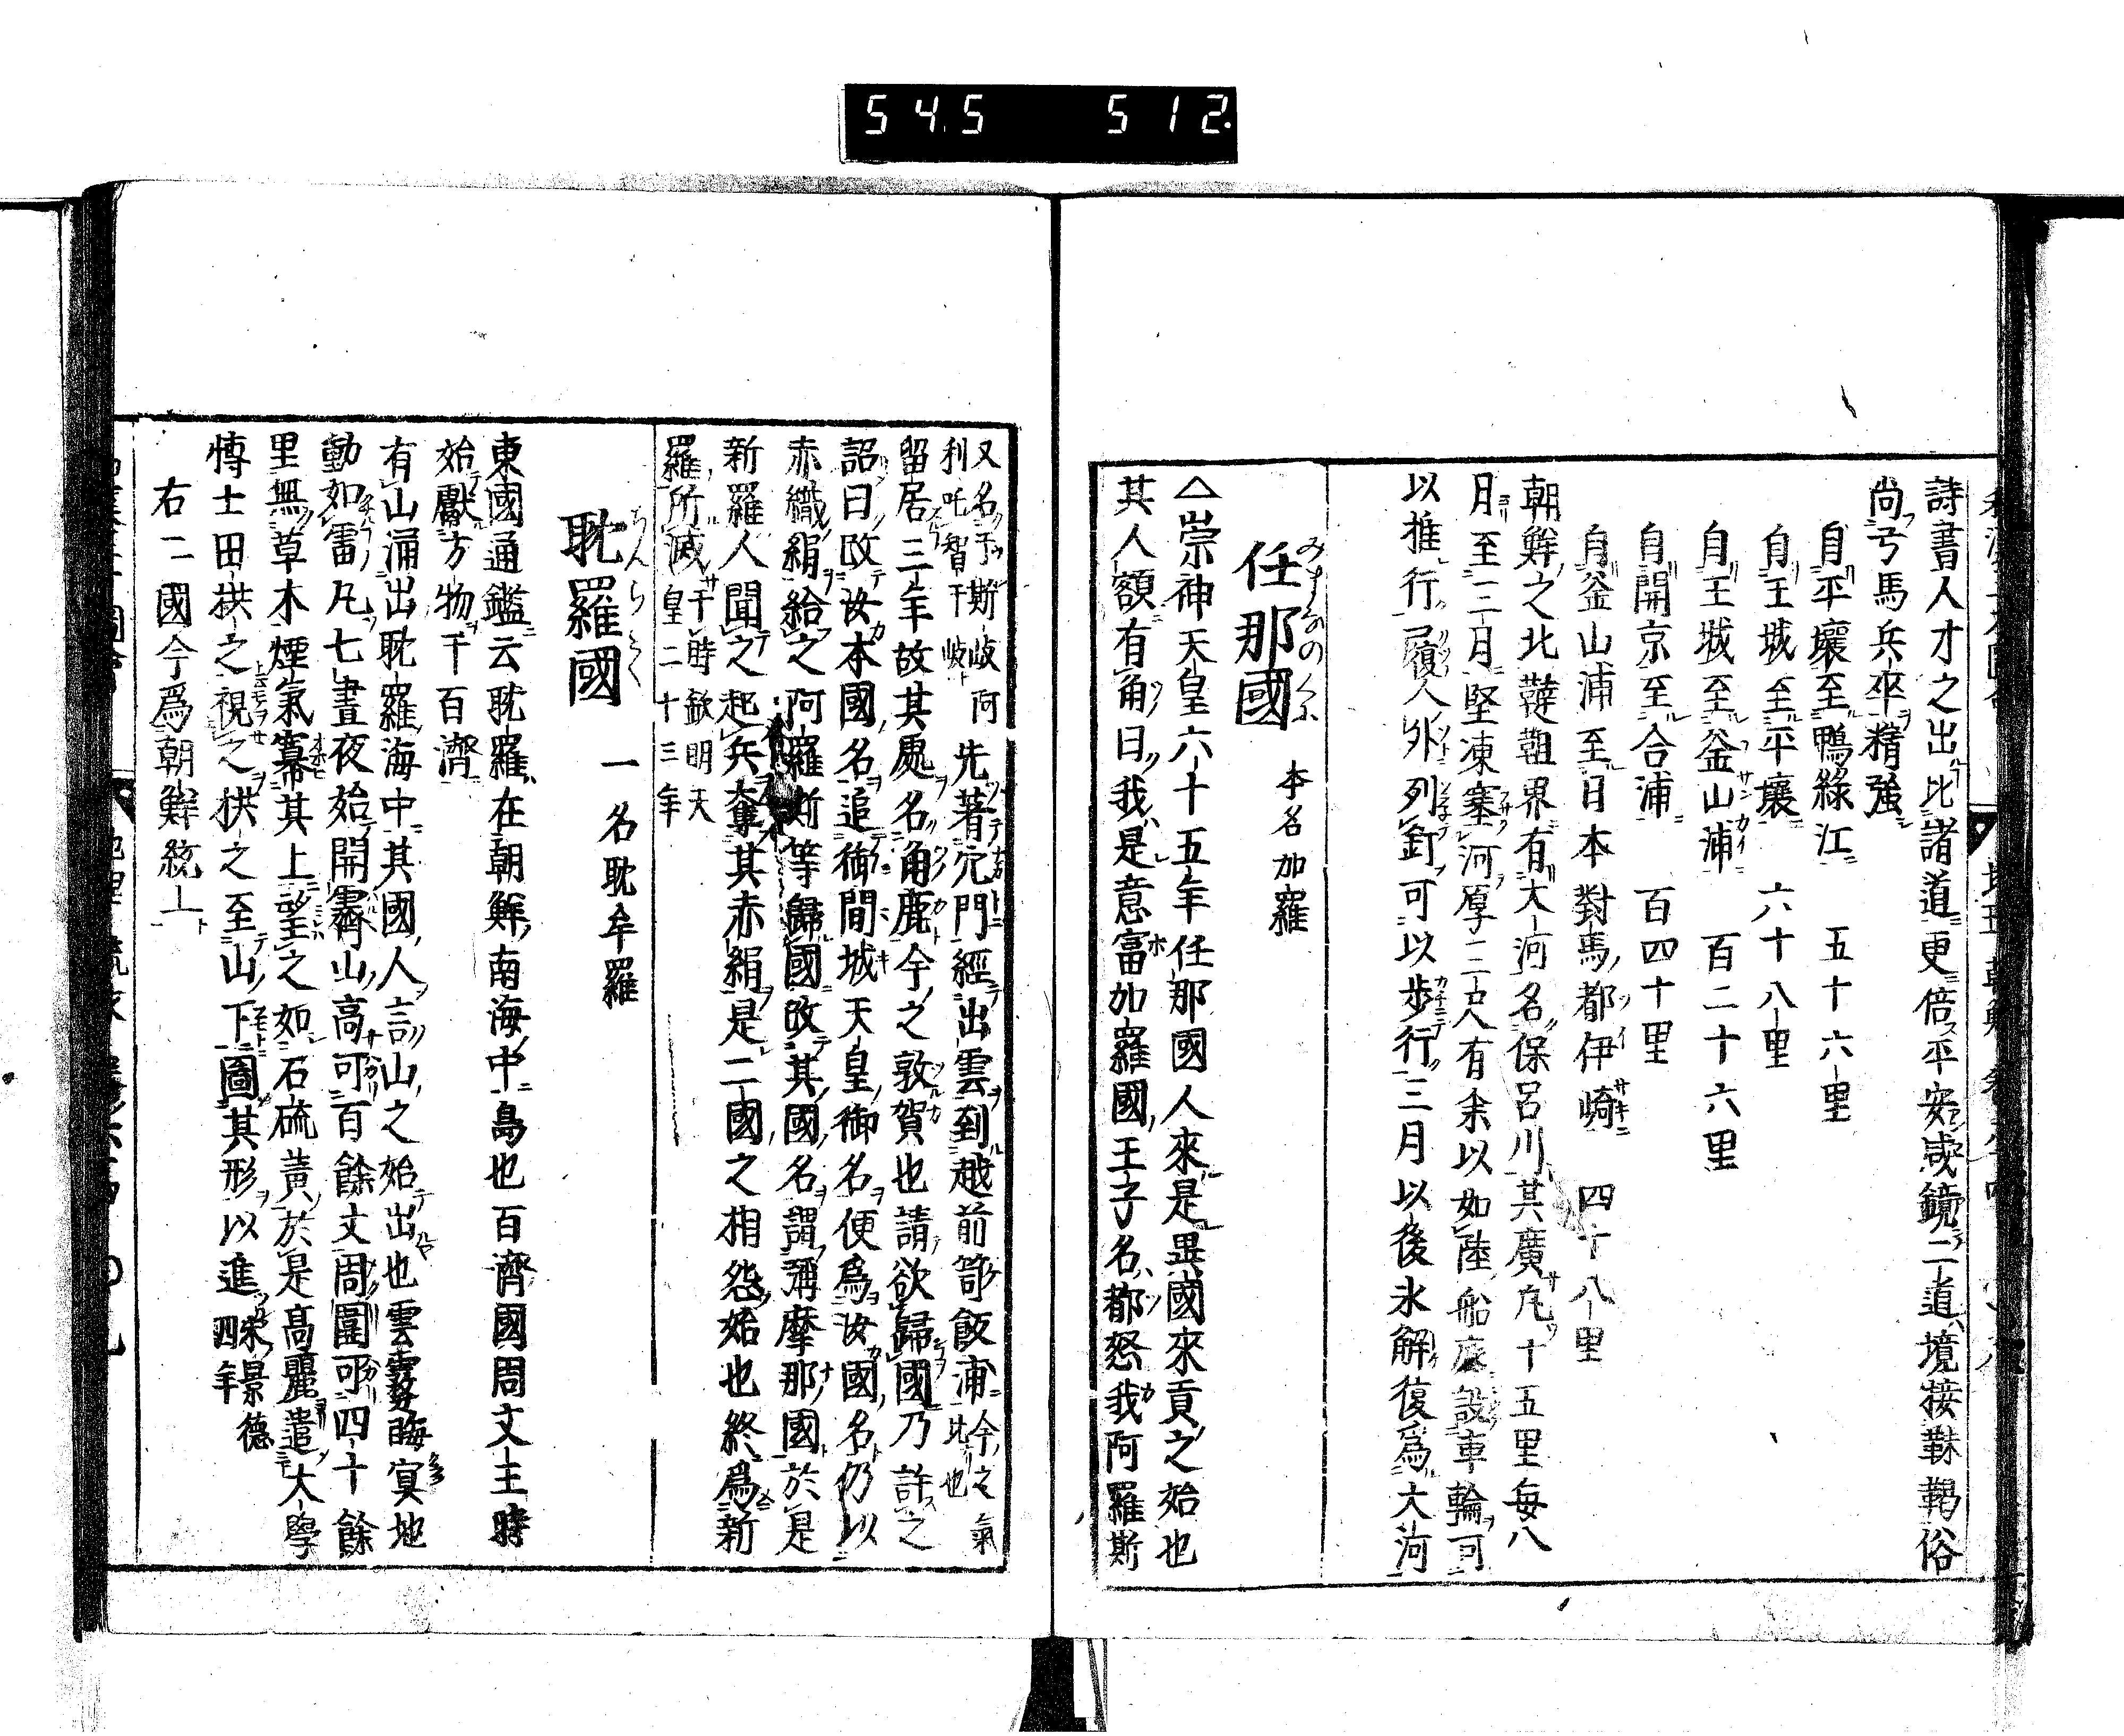 54.5 512.
詩書人才之出比諸道更倍平安咸鏡二道境接靺鞨俗
尚弓馬兵卒精強
自平壤至鴨綠江 五十六里
自王城至平壤 六十八里
自王城至釜山浦 百二十六里
自開京至合浦 百四十里
自釜山浦至日本對馬都伊崎 四十八里
朝鮮之北韃靼界有大河名保呂川其廣凡十五里每八
月至二月堅凍塞河厚二尺有余以如陸船底設車輪可
以推行履人外列釘可以步行三月以後氷解復爲大河
任那國 本名加羅
みまなのくに
△崇神天皇六十五年任那國人來是異國來貢之始也
其人額有角曰我是意富加羅國王子名都怒我阿羅斯
又名于斯岐阿
利叱智干岐
先著穴門經出雲到越前笥飯浦
今之氣
比也
留居三年故其處名角鹿今之敦賀也請欲歸國乃許之
詔曰改汝本國名追御間城天皇御名便爲汝國名仍以
赤織絹給之阿羅斯等歸國改其國名謂彌摩那國於是
新羅人聞之起兵奪其赤絹是二國之相怨始也終爲新
羅所滅
于時欽明天
皇二十三年
耽羅國 一名耽牟羅
ちんらこく
東國通鑑云耽羅在朝鮮南海中島也百濟國周文王時
始獻方物于百濟
有山涌出耽羅海中其國人言山之始出也雲霧晦冥地
動如雷凡七晝夜始開霽山高可百餘丈周圍可四十餘
里無草木煙氣冪其上望之如石硫黃於是高麗遣大學
博士田拱之視之拱之至山下圖其形以進
宋景德
四年
右二國今爲朝鮮統上